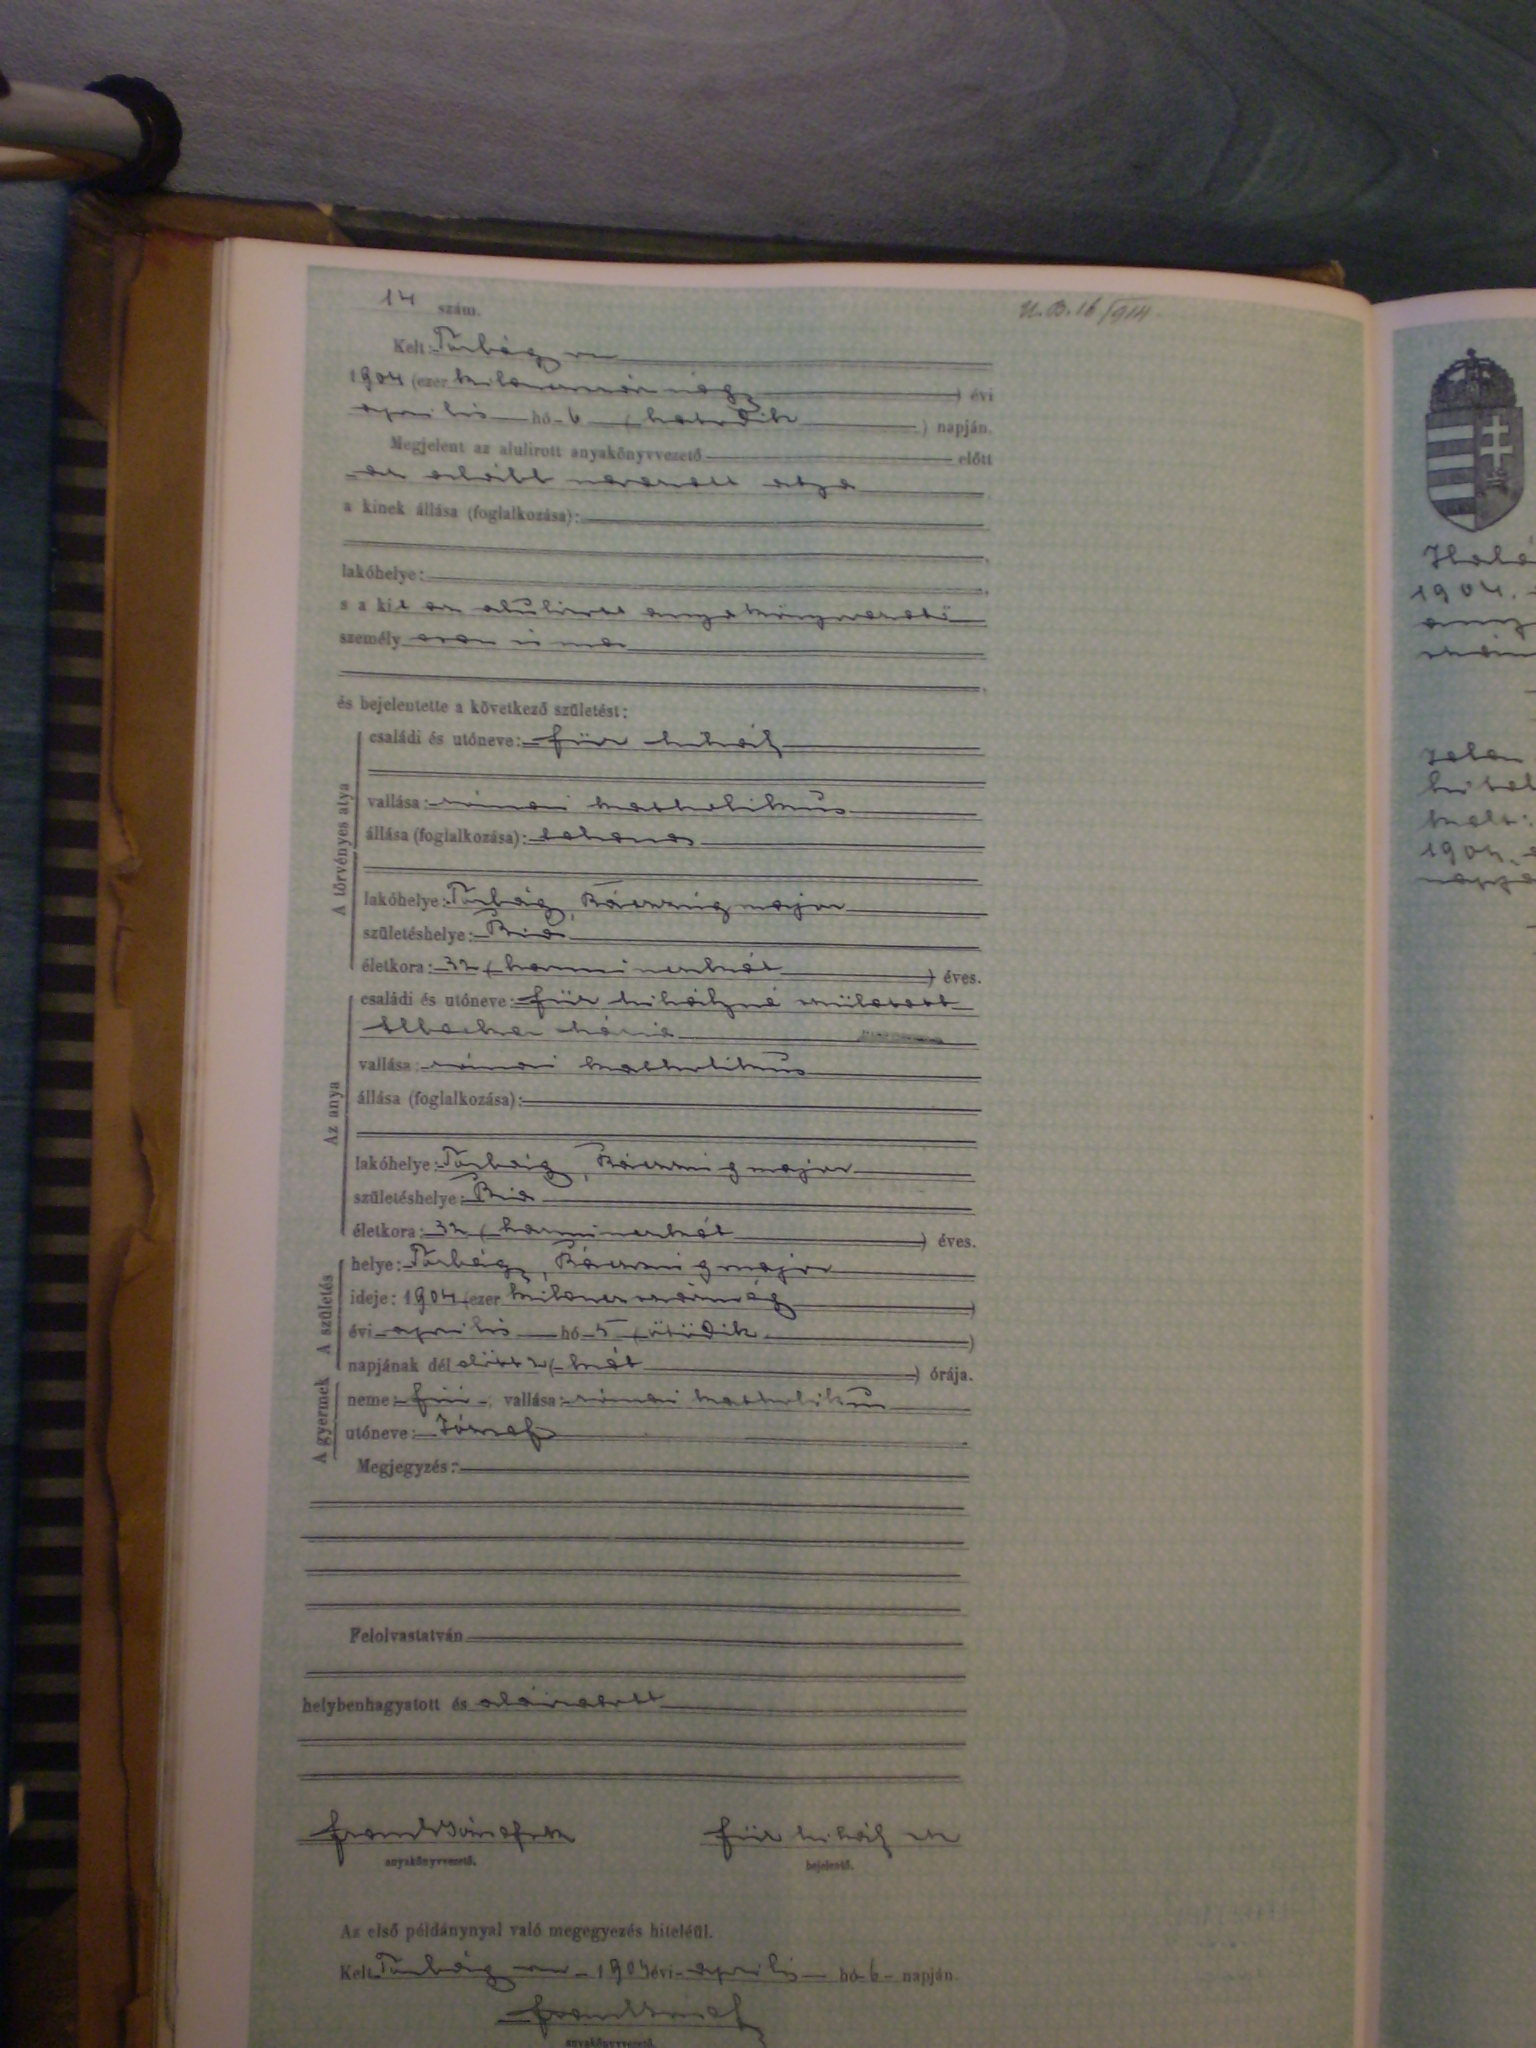 14 szám.
U. B. 16/914
Kelt: Torbágy on
1904 (ezer kilenczszáz négy) évi
április hó 6 (hatodik) napján.
Megjelent az alulirott anyakönyvvezető előtt
az alább nevezett atya
a kinek állása (foglalkozása):
lakóhelye:
s a kit az alulirott anyakönyvvezető
személyesen ismer
és bejelentette a következő születést:
A törvényes atya
családi és utóneve: Für Mihály
vallása: római katholikus
állása (foglalkozása):
lakóhelye: Torbágy, major
születéshelye: Bia
életkora: 32 (harminczkét) éves.
Az anya
családi és utóneve: Für Mihályné született
Mária
vallása: római katholikus
állása (foglalkozása):
lakóhelye: Torbágy, major
születéshelye: Bia
életkora: 32 (harminczkét) éves.
A születés
helye: Torbágy, major
ideje: 1904 (ezer kilenczszáznégy)
évi április hó 5 (ötödik)
napjának dél előtt 2 (két) órája.
A gyermek
neme: fiú, vallása: római katholikus
utóneve: József
Megjegyzés:
Felolvastatván
helybenhagyatott és aláiratott
Frank József sk
anyakönyvvezető.
Für Mihály sk
bejelentő.
Az első példánynyal való megegyezés hiteléül.
Kelt Torbágy on 1904 évi április hó 6 napján.
Frank József
anyakönyvvezető.
1904.
1904.